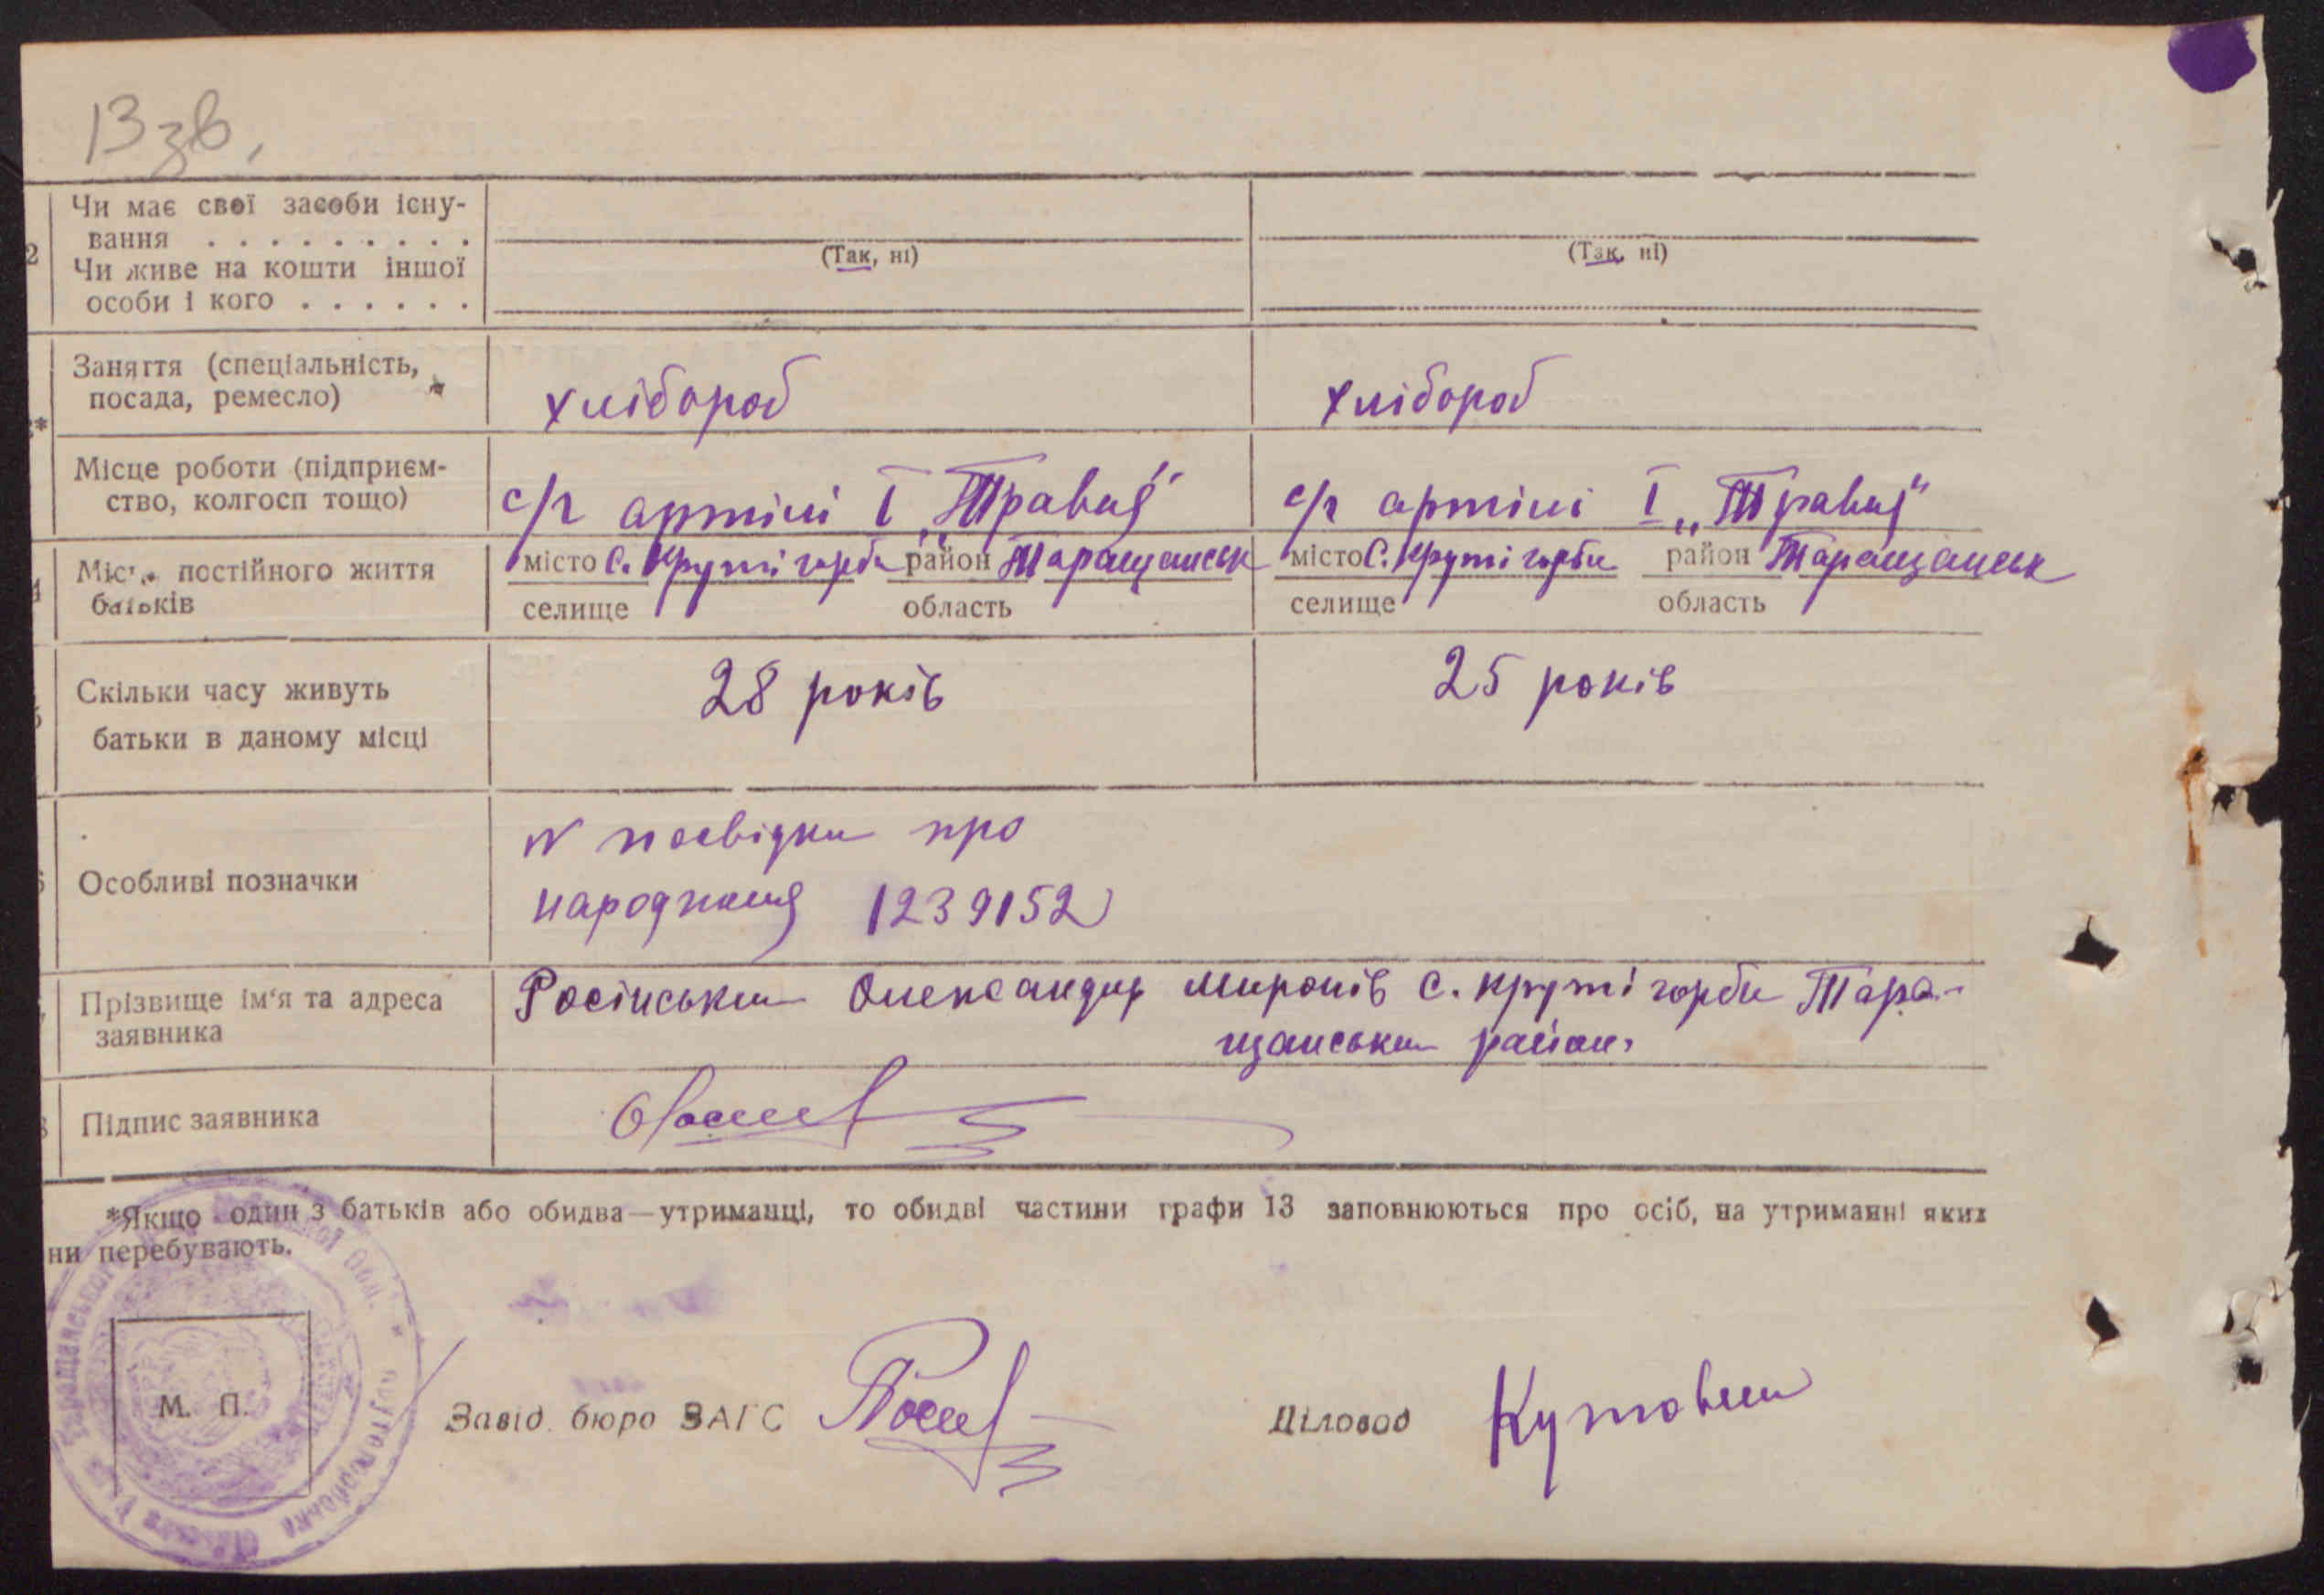 13 зв.
2 Чи має свої засоби існу-
вання . . . . . . . . . (Так, ні) (Так, ні)
Чи живе на кошти іншої
особи і кого . . . . . .
Заняття (спеціальність,
посада, ремесло) хлібороб хлібороб
Місце роботи (підприєм-
ство, колгосп тощо) с/г артілі І „Травня" с/г артілі І „Травня"
постійного життя місто С. Круті горби район Таращанськ місто С. Круті горби район Таращанськ
батьків селище область селище область
Скільки часу живуть 28 років 25 років
батьки в даному місці
Особливі позначки N посвідки про
народження 1239152
Прізвище ім'я та адреса Росінський Олександр Миронів С. Круті горби Тара-
заявника щанський район.
Підпис заявника
*Якщо один з батьків або обидва—утриманці, то обидві частини графи 13 заповнюються про осіб, на утриманні яких
ни перебувають.
М. П. Завід. бюро ЗАГС Діловод Кутовий